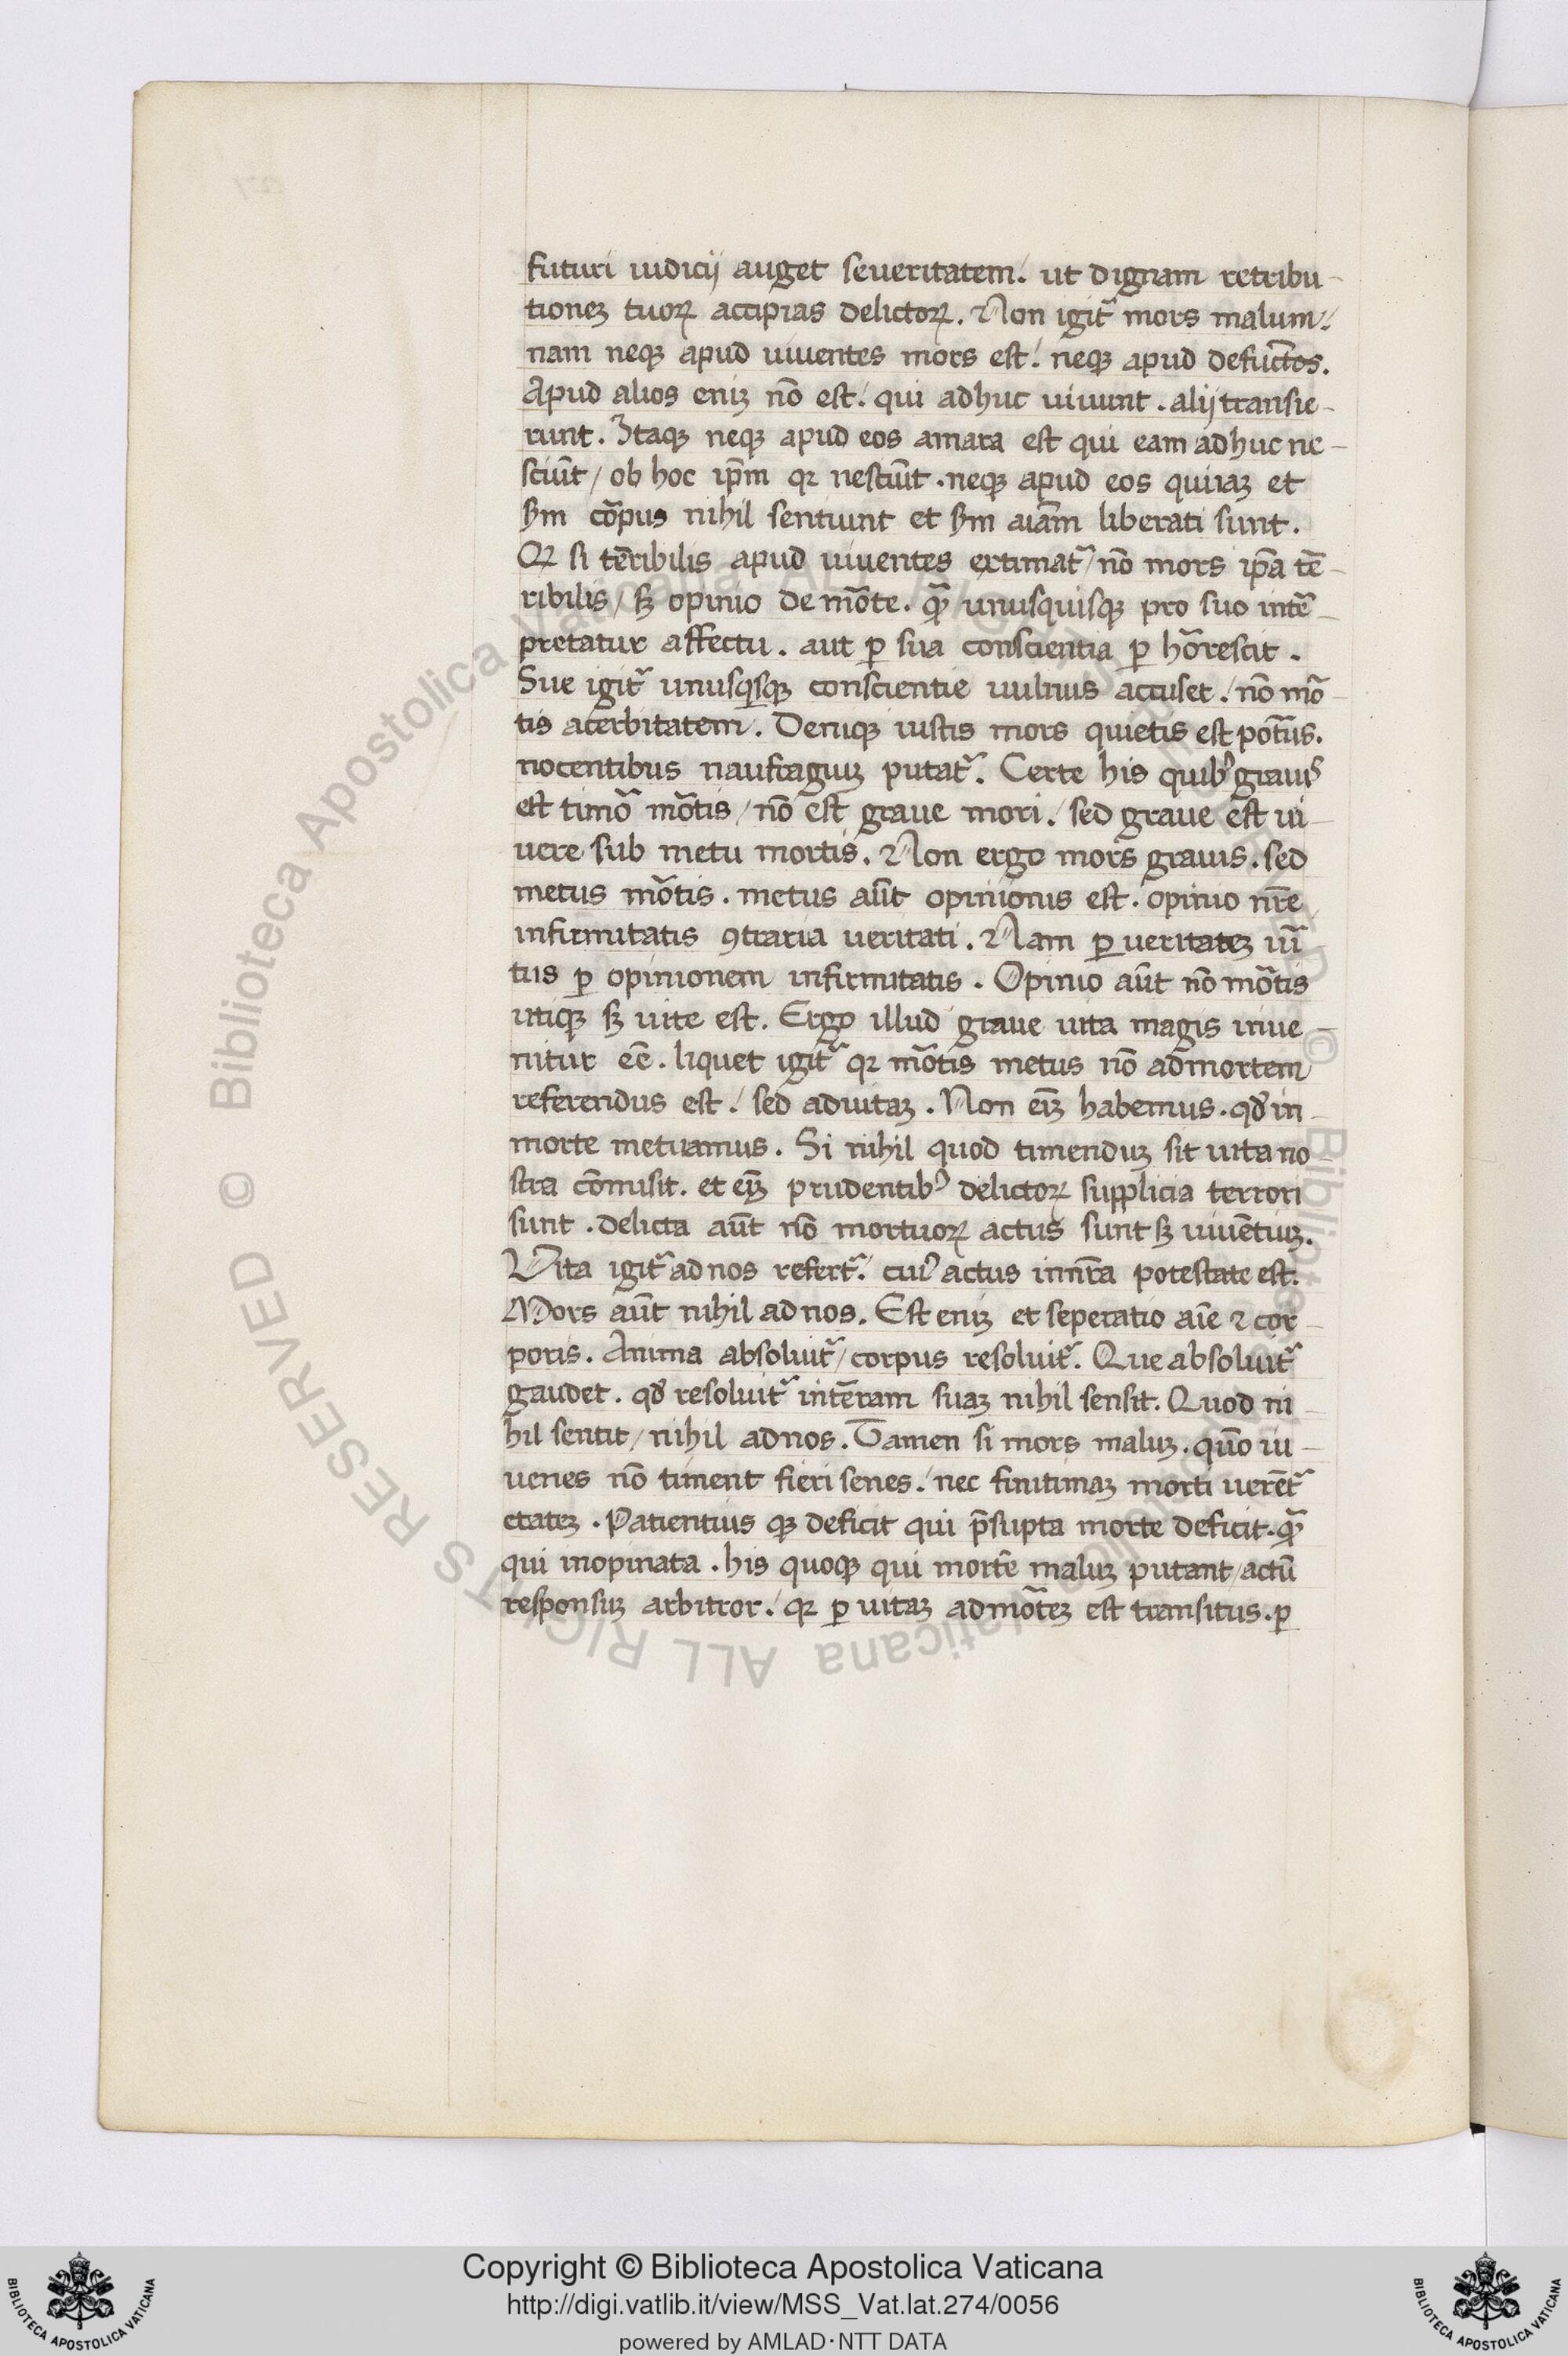 futuri iudicij auget seueritatem. ut dignam retribu-
tionez tuoꝝ accipias delictoꝝ. Non igit᷑ mors malum.
nam neqꝫ apud uiuentes mors est. neqꝫ apud defūctos.
Apud alios eniz nō est. qui adhuc uiuunt. alij transie-
runt. Itaqꝫ neqꝫ apud eos amara est qui eam adhuc ne-
sciūt / ob hoc ip̄m qꝛ nesciūt. neqꝫ apud eos qui iaꝫ et
s̄m cōrpus nihil sentiunt et s̄m aīam liberati sunt.
Qꝛ si tēribilis apud uiuentes extimat᷑ / nō mors ip̄a tē-
ribilis / sꝫ opinio de mōte. quā unusquisqꝫ pro suo intē-
pretatur affectu. aut ꝑ sua conscientia ꝑ hōrescit.
Sue igit᷑ unusqisqꝫ conscientie uulnus accuset. nō mō-
tis acerbitatem. Deniqꝫ iustis mors quietis est pōtus.
nocentibus naufragiuꝫ putat᷑. Certe his quibꝰ grauis
est timō mōtis / nō est graue mori. sed graue est ui-
uere sub metu mortis. Non ergo mors grauis. sed
metus mōtis. metus aūt opinionis est. opinio nr̄e
infirmitatis ꝯtraria ueritati. Nam ꝑ ueritateꝫ uī-
tus ꝑ opinionem infirmitatis. Opinio aūt nō mōtis
utiqꝫ sꝫ uite est. Ergo illud graue uita magis inue-
nitur eē. liquet igit᷑ qꝛ mōtis metus nō ad mortem
referendus est. sed ad uitaꝫ. Non eīꝫ habemus. qd̄ in
morte metuamus. Si nihil quod timenduꝫ sit uita no-
stra cōmisit. et eīꝫ prudentibꝰ delictoꝝ supplicia terrori
sunt. delicta aūt nō mortuoꝝ actus sunt sꝫ uiuētiuꝫ.
Vita igit᷑ ad nos refert᷑. cuiꝰ actus in nr̄a potestate est.
Mors aūt nihil ad nos. Est eniꝫ et seperatio aīe ⁊ cor-
poris. Anima absoluit᷑ / corpus resoluit᷑. Que absoluit᷑
gaudet. qd̄ resoluit᷑ in tēram suaꝫ nihil sensit. Quod ni-
hil sentit / nihil ad nos. Tamen si mors maluꝫ. quō iu-
uenes nō timent fieri senes. nec finitimaꝫ morti uerēt᷑
etateꝫ. Patientius qꝫ deficit qui p̄supta morte deficit. quā
qui inopinata. his quoqꝫ qui mortē maluꝫ putant / actū
responsuꝫ arbitror. qꝛ ꝑ uitaꝫ ad mōteꝫ est transitus. ꝑ
© Biblioteca Apostolica Vaticana ALL RIGHTS RESERVED
Copyright © Biblioteca Apostolica Vaticana
http://digi.vatlib.it/view/MSS_Vat.lat.274/0056
powered by AMLAD·NTT DATA
BIBLIOTECA APOSTOLICA VATICANA
BIBLIOTECA APOSTOLICA VATICANA